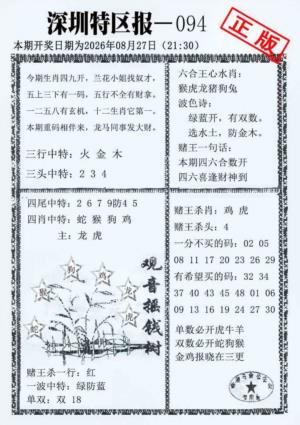 深圳特区报—094
正版
本期开奖日期为2026年08月27日（21:30）
今期生肖四九开，兰花小姐找奴才，
五上三下有一码，五行不全有财拿。
一二五八有玄机，十二生肖它第一。
本期重码相伴来，龙马同事发大财。
三行中特：火 金 木
三头中特：2 3 4
六合王心水肖：
猴虎龙猪狗兔
波色诗：
绿蓝开，有双数。
选水土，防金木。
赌王一句话：
本期四六合数开
四六喜逢财神到
四尾中特：2 6 7 9防4 5
四肖中特：蛇 猴 狗 鸡
主：龙 虎
观音摇钱树
狗
鸡
龙
猴
虎
蛇
赌王杀一行：红
一波中特：绿防蓝
单双：双 18
赌王杀肖：鸡 虎
赌王杀头：4
一分不买的码：02 05
08 11 17 20 23 26 29
有希望买的码：32 34
37 40 43 45 48 01 06
09 13 16 19 24 27 30
单数必开虎牛羊
双数必开蛇狗猴
金鸡报晓在三更